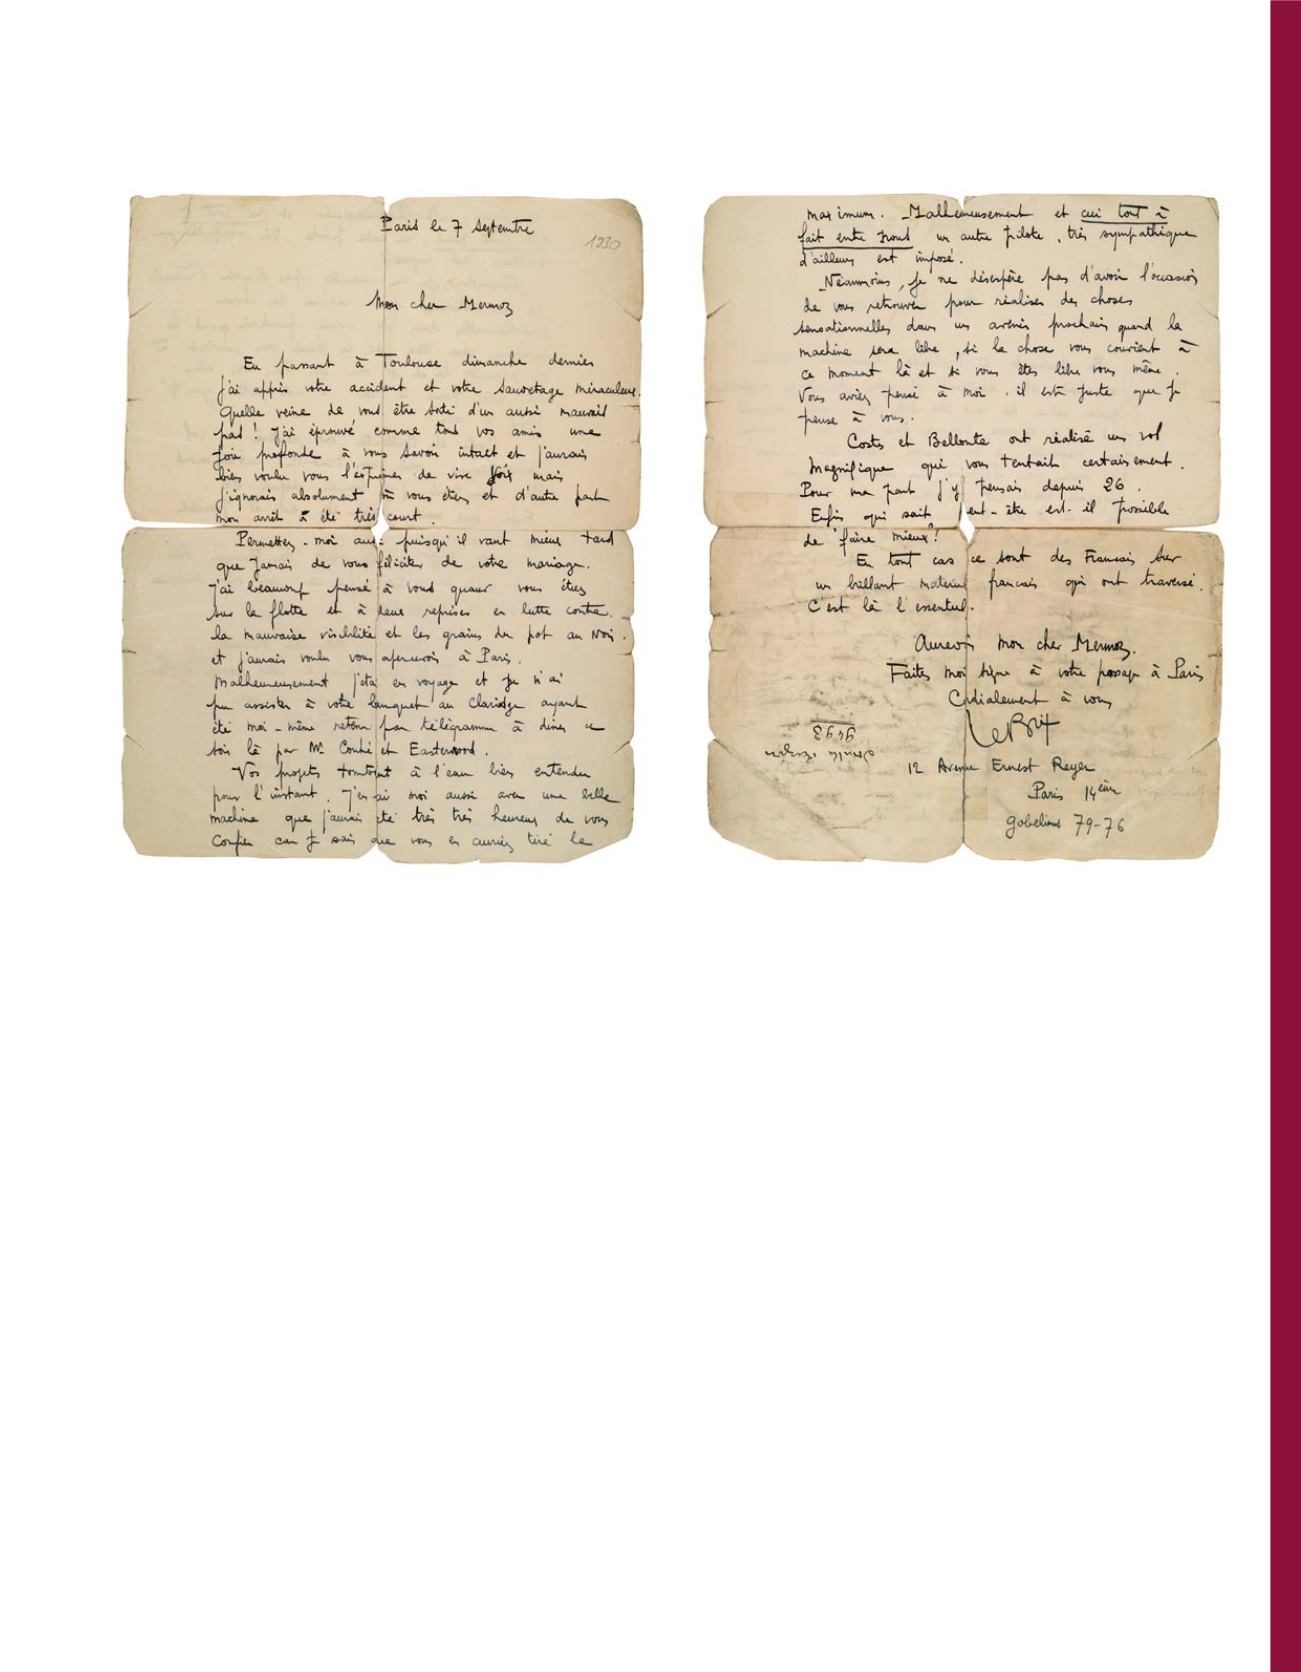 Paris le 7 septembre
1930
Mon cher Mermoz
En passant à Toulouse dimanche dernier
j'ai appris votre accident et votre sauvetage miraculeux.
Quelle veine de vous être sorti d'un aussi mauvais
pas ! J'ai éprouvé comme tous vos amis une
joie profonde à vous savoir intact et j'aurais
bien voulu vous l'exprimer de vive voix mais
j'ignorais absolument où vous étiez et d'autre part
mon arrêt a été très court.
Permettez-moi aussi puisqu'il vaut mieux tard
que jamais de vous féliciter de votre mariage.
J'ai beaucoup pensé à vous quand vous étiez
sur la flotte et à reprises en lutte contre
la mauvaise visibilité et les grains du pot au Noir.
et j'aurais voulu vous apercevoir à Paris.
Malheureusement j'étais en voyage et je n'ai
pu assister à votre banquet au Claridge ayant
été moi-même retenu par télégramme à diner ce
soir là par Mr et Easterwood.
Vos projets tombent à l'eau bien entendu
pour l'instant. J'en ai moi aussi avec une belle
machine que j'aurais été très très heureux de vous
confier car je sais que vous en auriez tiré le
maximum. Malheureusement et ceci tout à
fait entre nous un autre pilote, très sympathique
d'ailleurs est imposé.
Néanmoins, je ne désespère pas d'avoir l'occasion
de vous retrouver pour réaliser des choses
sensationnelles dans un avenir prochain quand la
machine sera libre, si la chose vous convient à
ce moment là et si vous êtes libre vous même.
Vous aviez pensé à moi. il est juste que je
pense à vous.
Costes et Bellonte ont réalisé un vol
magnifique qui vous tentait certainement.
Pour ma part j'y pensais depuis 26.
Enfin qui sait peut-être est-il possible
de faire mieux ?
En tout cas ce sont des Francais sur
un brillant materiel francais qui ont traversé.
C'est là l'essentiel.
Aurevoir mon cher Mermoz.
Faites moi signe à votre passage à Paris
Cordialement à vous
Le Brix
9493
12 Avenue Ernest Reyer
Paris 14ème
Gobelins 79-76